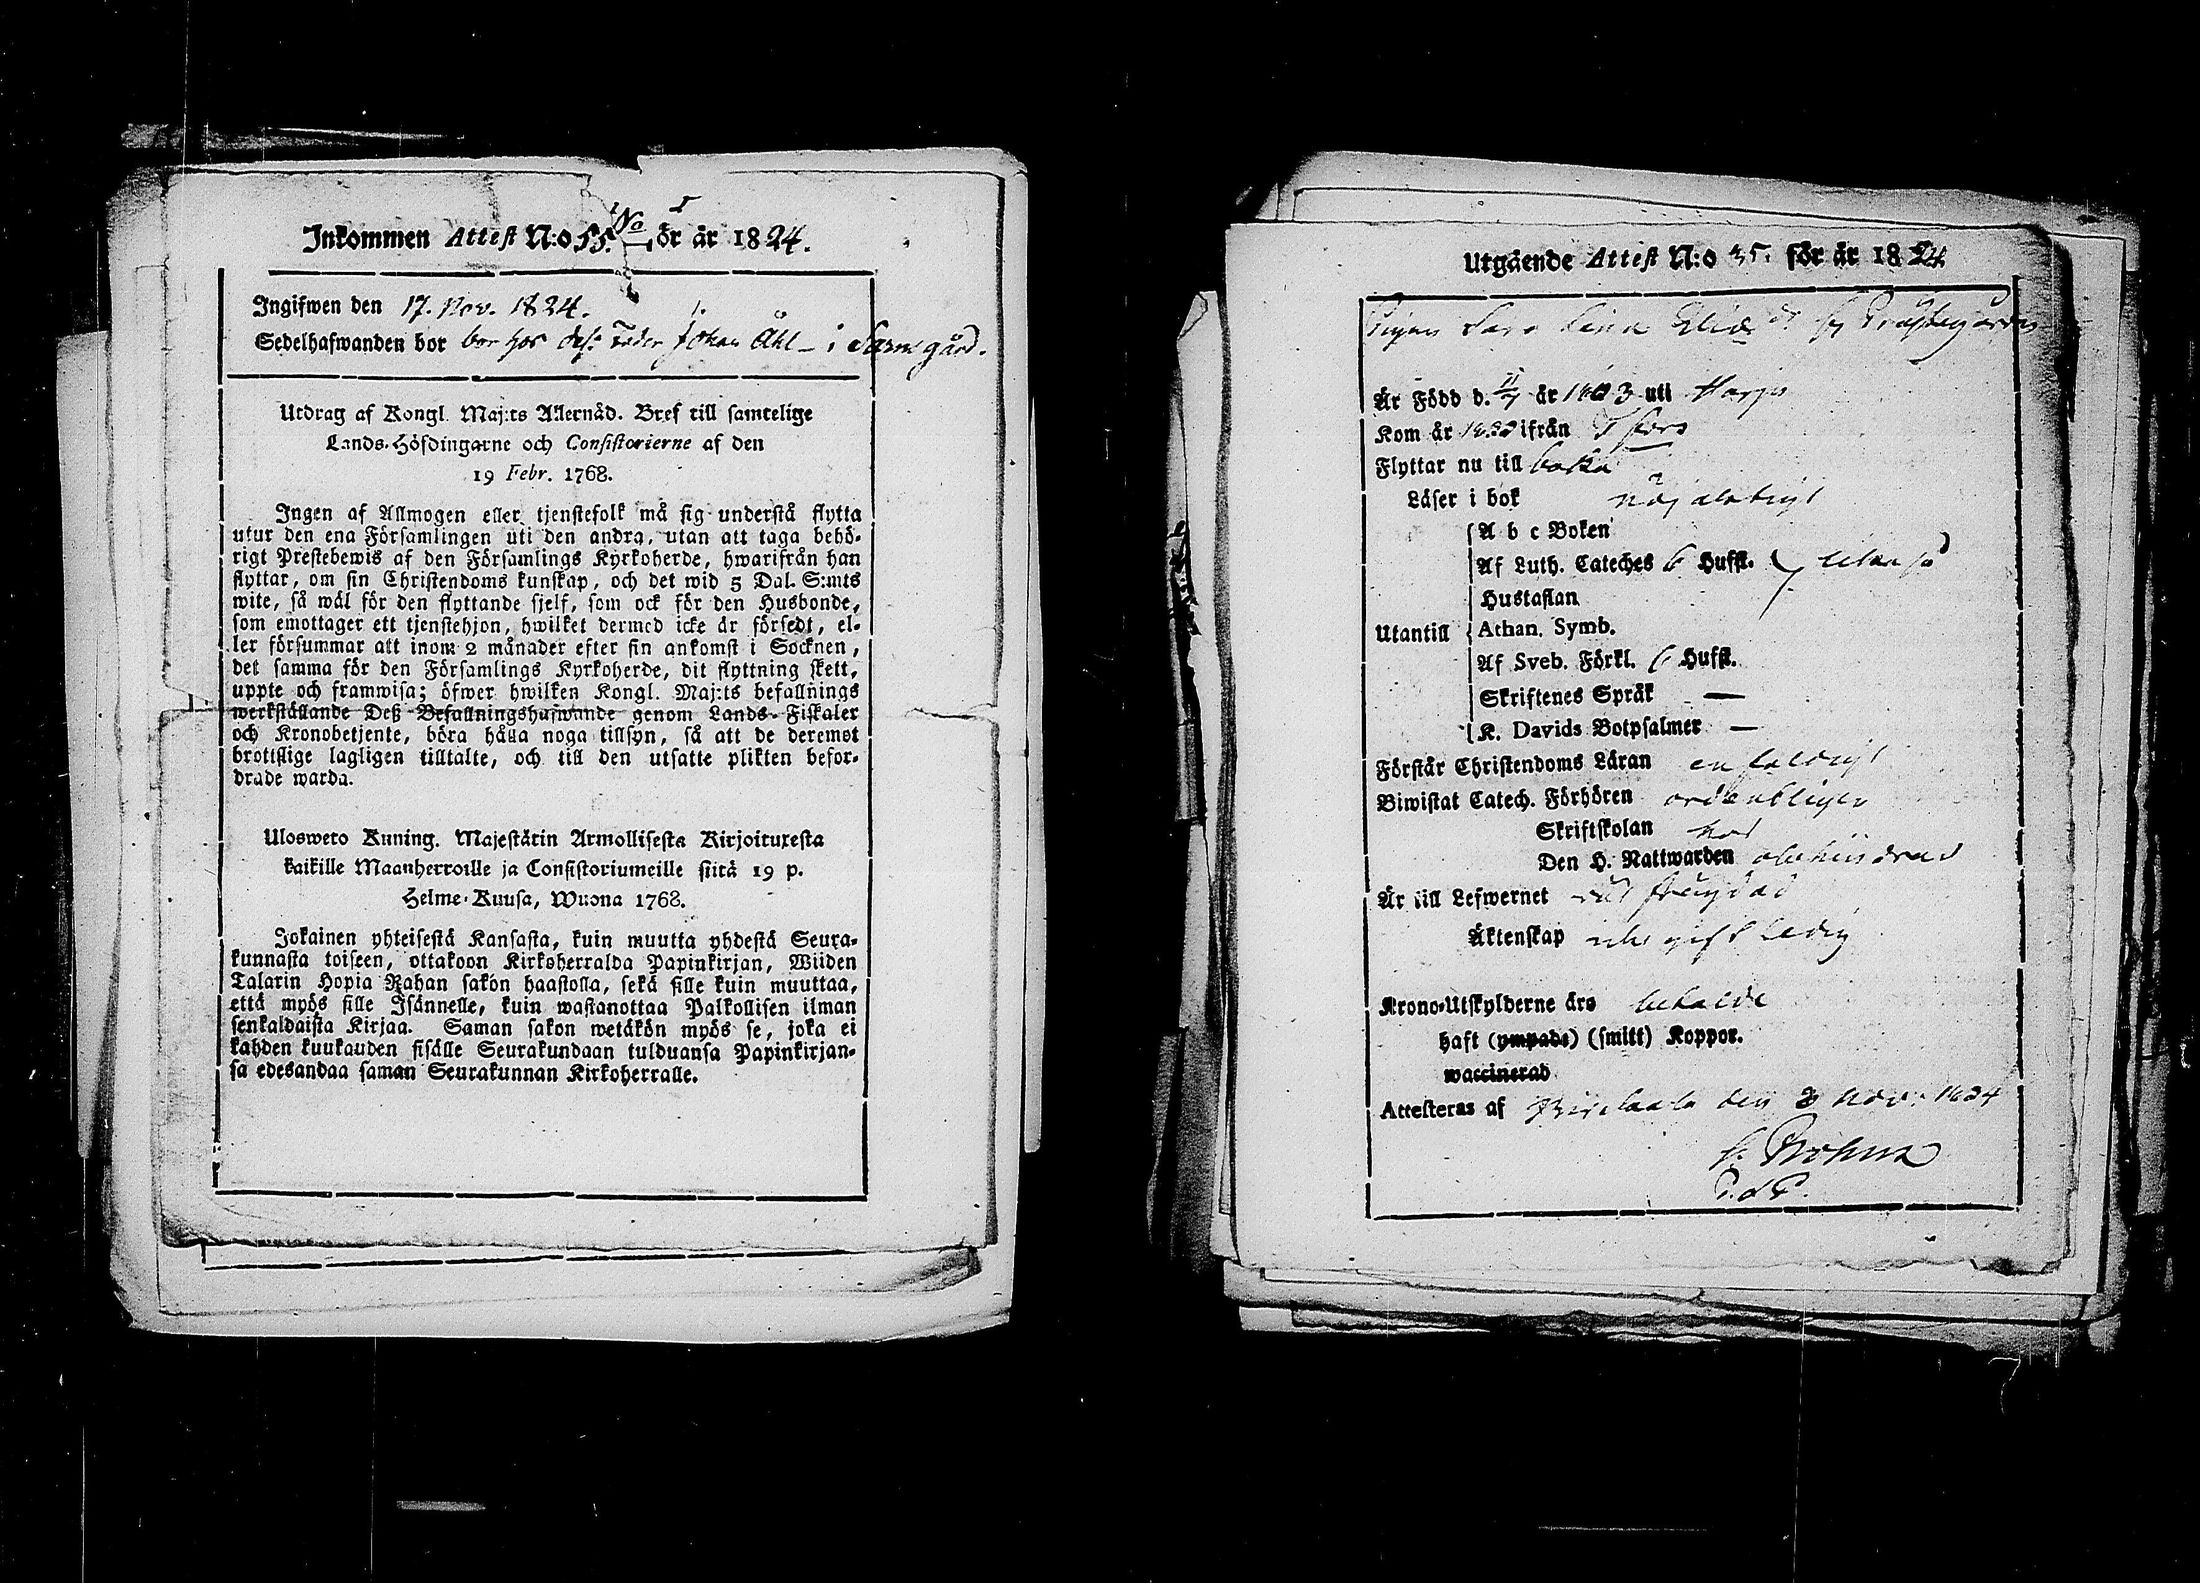 No 1
Inkommen Attest N:o 55. för år 1824.
Ingifwen den 17. Nov. 1824.
Sedelhafwanden bor bor hos dess Fader Johan Åhl i Särmgård.
Utdrag af Kongl. Maj:ts Allernåd. Bref till samtelige
Lands-Höfdingarne och Consistorierne af den
19 Febr. 1768.
Ingen af Allmogen eller tjenstefolk må sig understå flytta
utur den ena Församlingen uti den andra, utan att taga behö-
rigt Prestebewis af den Församlings Kyrkoherde, hwarifrån han
flyttar, om sin Christendoms kunskap, och det wid 5 Dal. S:mts
wite, så wäl för den flyttande sjelf, som ock för den Husbonde,
som emottager ett tjenstehjon, hwilket dermed icke är försedt, el-
ler försummar att inom 2 månader efter sin ankomst i Socknen,
det samma för den Församlings Kyrkoherde, dit flyttning skett,
uppte och framwisa; öfwer hwilken Kongl. Maj:ts befallnings
werkställande Deß Befallningshafwande genom Lands-Fiskaler
och Kronobetjente, böra hålla noga tillsyn, så att de deremot
brottslige lagligen tilltalte, och till den utsatte plikten befor-
drade warda.
Ulosweto Kuning. Majestätin Armollisesta Kirjoituxesta
kaikille Maanherroille ja Consistoriumeille siitä 19 p.
Helme-Kuusa, Wuona 1768.
Jokainen yhteisestä Kansasta, kuin muutta yhdestä Seura-
kunnasta toiseen, ottakoon Kirkoherralda Papinkirjan, Wiiden
Talarin Hopia Rahan sakon haastolla, sekä sille kuin muuttaa,
että myös sille Isännelle, kuin wastanottaa Palkollisen ilman
senkaldaista Kirjaa. Saman sakon wetäkön myös se, joka ei
kahden kuukauden sisälle Seurakundaan tulduansa Papinkirjan-
sa edesandaa saman Seurakunnan Kirkoherralle.
Utgående Attest N:o 35. för år 1824
Pigan Sara Lena dr fr Prästegården
Är Född d. 11/7 år 1803 uti Harju
Kom år ifrån Tfors
Flyttar nu till baka
Läser i bok nöjaktigt
A b c Boken
Af Luth. Cateches 6 Hufst. utan så
Hustaflan
Utantill Athan. Symb.
Af Sveb. Förkl. 6 Hufst.
Skriftenes Språk —
K. Davids Botpsalmer —
Förstår Christendoms Läran enfaldigt
Biwistat Catech. Förhören ordentligen
Skriftskolan
Den H. Nattwarden obehindrad
Är till Lefwernet wäl frägdad
Äktenskap icke gift ledig
Krono-Utskylderne äro betalde
haft (ympade) (smitt) Koppor.
waccinerad
Attesteras af den 3 Nov. 1824
P.d.P.